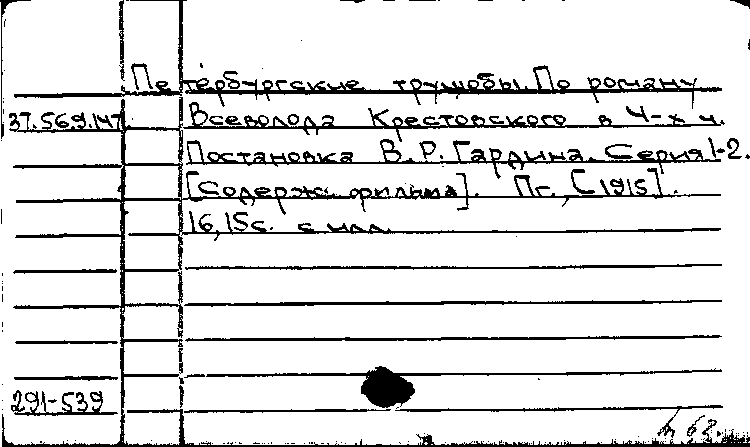 Петербургские трущобы. По роману
37.569.147 Всеволода Крестовского в 4-х ч.
Постановка В.Р. Гардина. Серия 1-2.
[Содерж. фильма]. Пг., [1915].
16, 15 с. с илл.
291-539